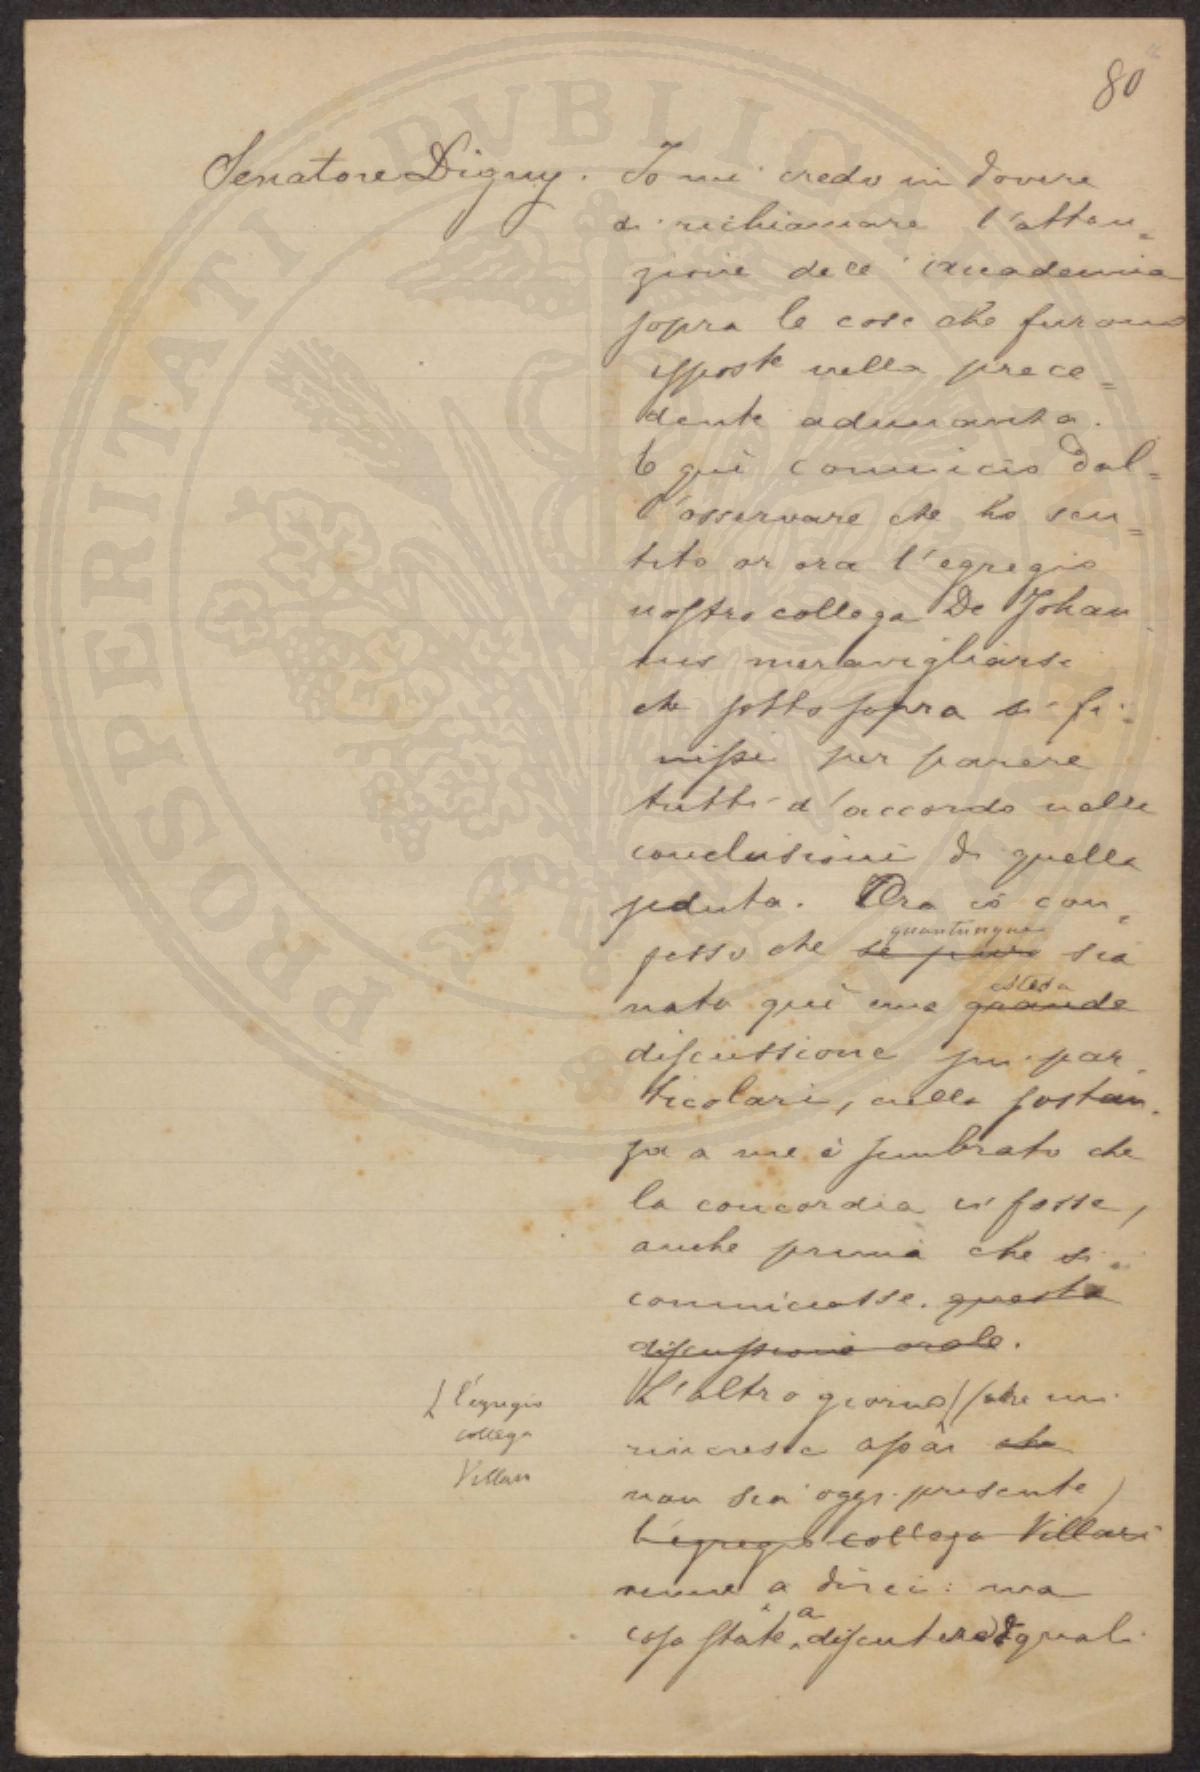 80
Senatore Digny. Io mi credo in dovere
di richiamare l'atten=
zione dell'Accademia
sopra le cose che furono
esposte nella prece=
dente adunanza.
E qui comincio dal=
l'osservare che ho sen=
tito or ora l'egregio
nostro collega De Johan
nis meravigliarsi
che sotto sopra si fi=
nissi per parere
tutti d'accordo nelle
conclusioni di quella
seduta. Ora io con=
quantunque
fesso che se pure sia
estesa
nata qui una grande
discussione sui par=
ticolari, nella sostan=
za a me è sembrato che
la concordia ci fosse,
anche prima che si
cominciasse. questa
discussione orale.
L'altro giorno (che mi
l'egregio
collega
Villari
rincresce assai che
non sia oggi presente)
l'egregio collega Villari
venne a dirci: ma
a
cosa state discutere? quali
PROSPERITATI PUBLICAE